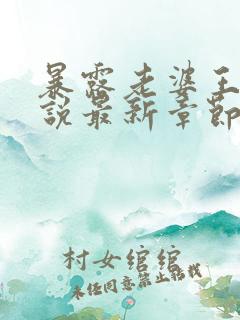 暴露老婆王
说最新章节
村女绾绾
未经同意禁止转载